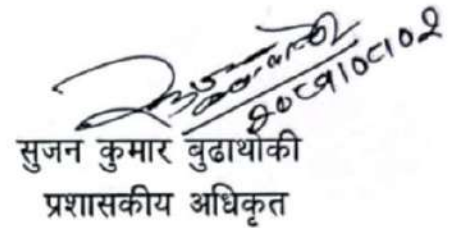 २०८१।०८।०२
सुजन कुमार बुढाथोकी
प्रशासकीय अधिकृत